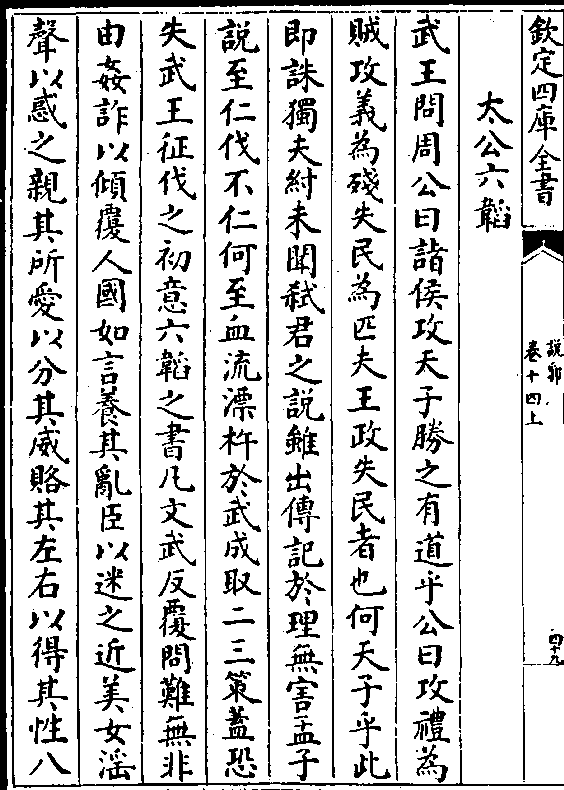 欽定四庫全書
說郛
卷十四上
四十九
太公六韜
武王問周公曰諸侯攻天子勝之有道乎公曰攻禮為
賊攻義為殘失民為匹夫王政失民者也何天子乎此
即誅獨夫紂未聞弒君之說雖出傳記於理無害孟子
說至仁伐不仁何至血流漂杵於武成取二三策蓋恐
失武王征伐之初意六韜之書凡文武反覆問難無非
由姦詐以傾覆人國如言養其亂臣以迷之近美女淫
聲以惑之親其所愛以分其威賂其左右以得其性八